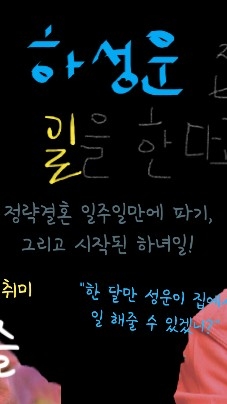 하성운
일을 한다고
정략결혼 일주일만에 파기,
그리고 시작된 하녀일!
취미
"한 달만 성운이 집에서
일 해줄 수 있겠니?"